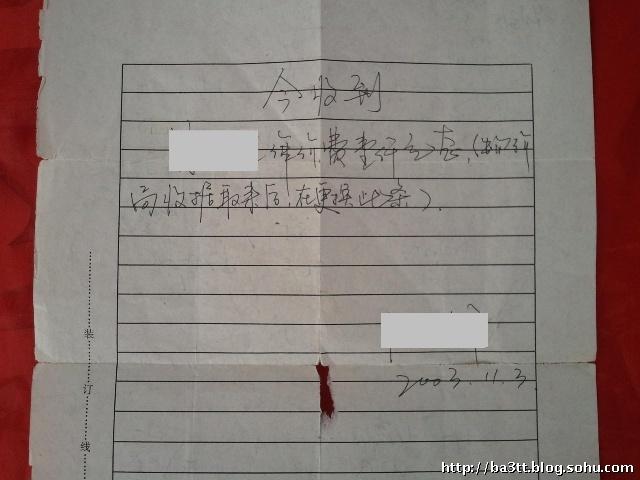 今收到
评价费壹仟元整,(待评价
局收据取来后,在更换此条)。
2003.11.3.
装
订
线
http://ba3tt.blog.sohu.com